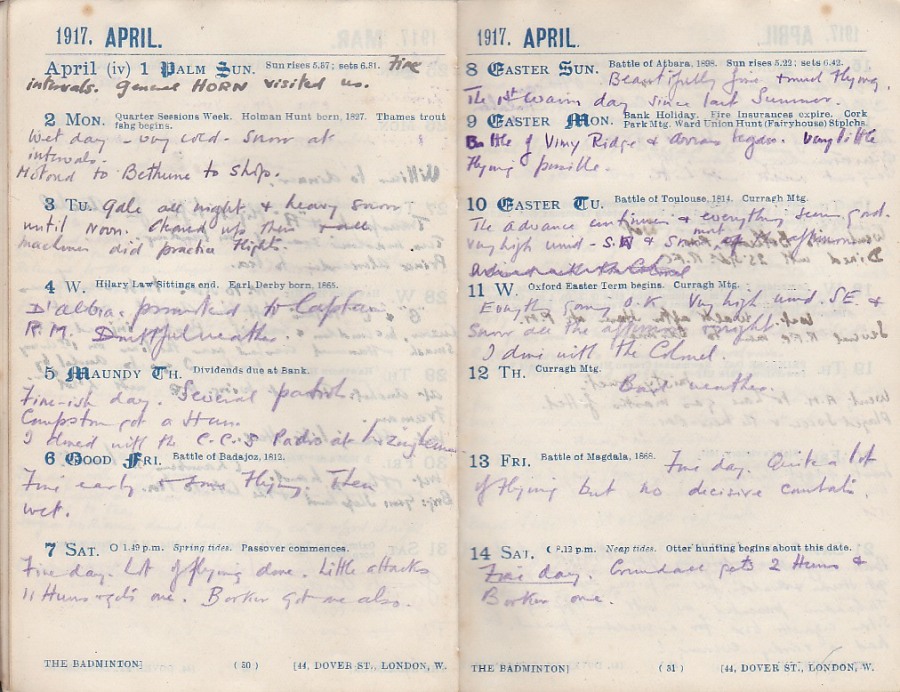 1917. APRIL.
April (iv) 1 PALM SUN. Sun rises 5.37; sets 6.31. Fine
intervals. General HORN visited us.
2 MON. Quarter Sessions Week. Holman Hunt born, 1827. Thames trout
fshg begins.
Wet day - very cold - Snow at
intervals.
Motored to Bethune to shop.
3 TU. Gale all night & heavy snow
until noon. Cleared up then & all
machines did practice flights.
4 W. Hilary Law Sittings end. Earl Derby born, 1865.
D'albiac promoted to Captain
R.M. Doubtful weather.
5 MAUNDY TH. Dividends due at Bank.
Fine-ish day. Several patrols.
Compston got a Hun.
I dined with the C.C.S Padre at
6 GOOD FRI. Battle of Badajoz, 1812.
Fine early & some flying. Then
wet.
7 SAT. O 1.49 p.m. Spring tides. Passover commences.
Fine day. Lot of flying done. Little attacks
11 Huns & gets one. Booker got one also.
THE BADMINTON] (30) [44, DOVER ST., LONDON, W.
1917. APRIL.
8 EASTER SUN. Battle of Atbara, 1898. Sun rises 5.22; sets 6.42.
Beautifully fine & much flying.
The 1st warm day since last Summer.
9 EASTER MON. Bank Holiday. Fire Insurances expire. Cork
Park Mtg. Ward Union Hunt (Fairyhouse) Stplchs.
Battle of Vimy Ridge & Arras began. Very little
flying possible.
10 EASTER TU. Battle of Toulouse, 1814. Curragh Mtg.
The advance continues & everything seems good.
Very high wind - & Snow most of afternoon
11 W. Oxford Easter Term begins. Curragh Mtg.
Everything going O.K. Very high wind. SE. &
Snow all the afternoon & night.
I dine with the Colonel.
12 TH. Curragh Mtg.
Bad weather.
13 FRI. Battle of Magdala, 1868. Fine day. Quite a lot
of flying but no decisive combats.
14 SAT. 8.12 p.m. Neap tides. Otter hunting begins about this date.
Fine day. Crundall gets 2 Huns &
Booker one.
THE BADMINTON] (31) [44, DOVER ST., LONDON, W.